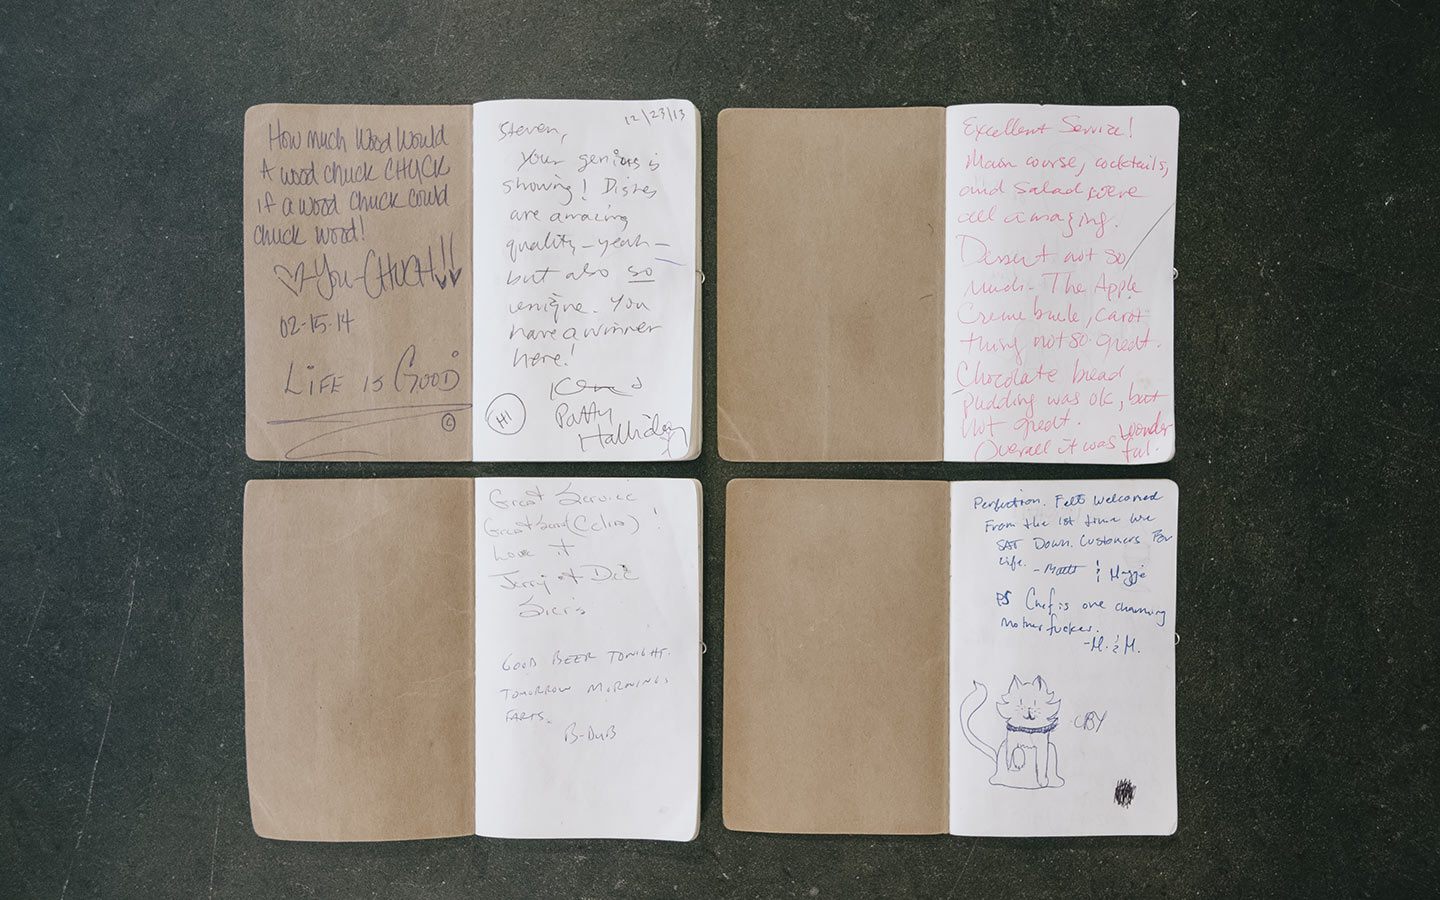 How much Wood Would
A wood chuck CHUCK
if a wood chuck could
chuck wood!
You CHUCK!!
02-15-14
LIFE IS GOOD
©
12/23/13
Steven,
Your genious is
showing! Dishes
are amazing
quality - yeah -
but also so
unique. You
have a winner
here!
Patty
Halliday
HI
Excellent Service!
Main course, cocktails,
and salad were
all amazing.
Dessert not so
much. The Apple
Creme brule, carot
thing not so great.
Chocolate bread
pudding was ok, but
not great.
Overall it was wonder
ful.
Great Service
Great (Celia) !
Love it
Jerry + Dee
GOOD BEER TONIGHT.
TOMORROW MORNING,
FARTS.
B-DUB
Perfection. Felt welcomed
From the 1st time we
SAT DOWN. Customers For
Life.
- Matt & Maggie
PS Chef is one charming
motherfucker.
-M. & M.